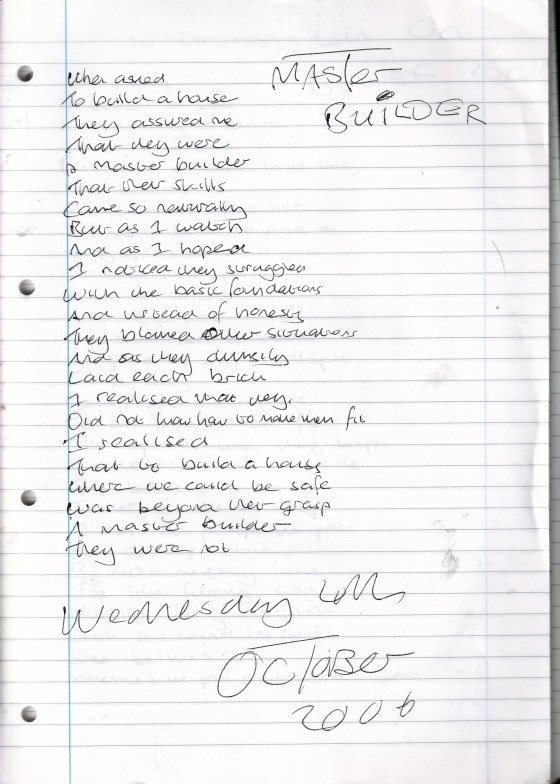 MASTER
BUILDER
When asked
To build a house
They assured me
That they were
A Master builder
That their skills
Came so naturally
But as I watch
And as I hoped
I noticed they struggled
With the basic foundations
And instead of honesty
They blamed other situations
And as they clumsily
Laid each brick
I realised that they.
Did not know how to make them fit
I realised
That to build a house
Where we could be safe
Was beyond their grasp
A Master builder
They were not
Wednesday 4th
OCTOBER
2006